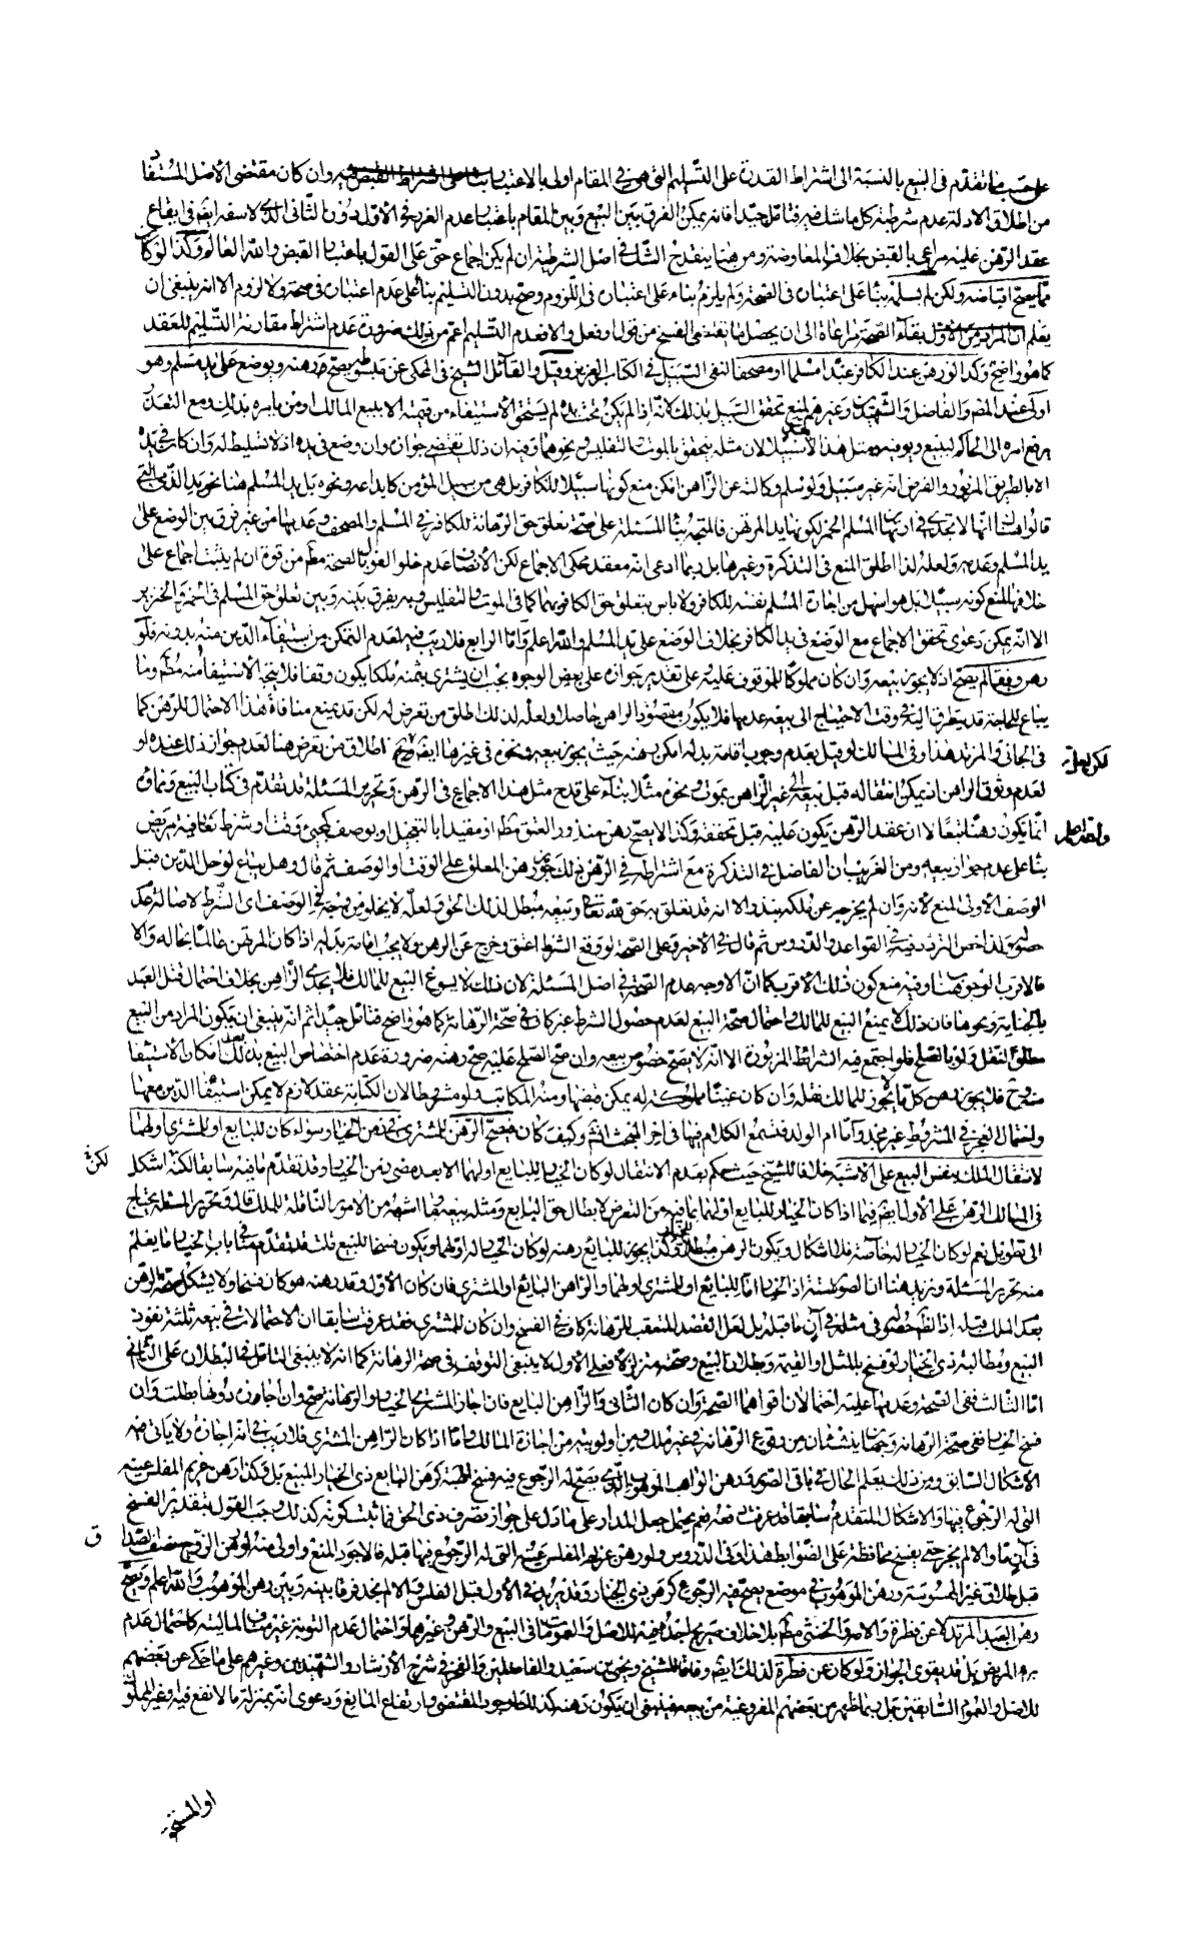 على حسب ما تقدم فى البيع بالنسبة الى اشتراط القدرة على التسليم الذى هو فى المقام اولى بالاعتبار بناء على اشتراط القبض فيه وان كان مقتضى الاصل المستفاد
من اطلاق الادلة عدم شرطية كل ما شك فيه فتأمل جيدا فانه يمكن الفرق بين البيع وبين المقام باعتبار عدم الغرر فى الاول دون الثانى الذى لا سفه ايضا فى ايقاع
عقد الرهن عليه مراعى بالقبض بخلاف المعاوضة ومن هنا ينقدح الشك فى اصل الشرطية ان لم يكن اجماع حتى على القول باعتبار القبض والله العالم وكذا لو كان
مما يصح اقباضه ولكن لم يسلمه بناء على اعتباره فى الصحة ولم يلزم بناء على اعتباره فى اللزوم وصح بدون التسليم بناء على عدم اعتباره فى صحة ولا لزوم الا انه ينبغى ان
يعلم ان المراد من الاول بقاء الصحة مراعاة الى ان يحصل ما يقتضى الفسخ من قول او فعل والا فعدم التسليم اعم من ذلك ضرورة عدم اشتراط مقارنة التسليم للعقد
كما هو واضح وكذا لو رهن عند الكافر عبدا مسلما او مصحفا لنفى السبيل فى الكتاب العزيز وقيل والقائل الشيخ فى المحكى عن مبسوطه يصح رهنه ويوضع على يد مسلم وهو
اولى عند المصنف والفاضل والشهيدين وغيرهم لمنع تحقق السبيل بذلك لانه اذا لم يكن تحت يده لم يستحق الاستيفاء من قيمته الا ببيع المالك او من يامره بذلك ومع التعذر
يرفع امره الى الحاكم ليبيع ويوفيه ومثل هذا لا سبيلا لان مثله يتحقق بالموت والتفليس ونحوهما وفيه ان ذلك يقتضى جوازه وان وضع فى يده اذ لا تسليط له وان كان فى يده
الا بالطريق المزبور والفرض انه غير سبيل ولو سلم وكالته عن الراهن امكن منع كونها سبيلا للكافر بل هى من سبيل المؤمن كايداعه ونحوه بل يد المسلم هنا نحو يد الذمى التى
يد المسلم وعدمه ولعله لذا اطلق المنع فى التذكرة وغيرها بل ربما ادعى انه معقد محكى الاجماع لكن الانصاف عدم خلو القول بالصحة مطلقا من قوة ان لم يثبت اجماع على
خلافه لمنع كونه سبيلا بل هو اسهل من اجارة المسلم نفسه للكافر ولا باس بتعلق حق الكافر بهما كما فى الموت والتفليس وبه يفرق بينه وبين تعلق حق المسلم فى الخمر والخنزير
الا انه يمكن دعوى تحقق الاجماع مع الوضع فى يد الكافر بخلاف الوضع على يد المسلم والله اعلم واما الرابع فلا ريب فيه لعدم التمكن من استيفاء الدين منه بدونه فلو
رهن وقفا لم يصح اذ لا يجوز بيعه وان كان مملوكا للموقوف عليه وعلى تقدير جوازه على بعض الوجوه يجب ان يشترى بثمنه ملكا يكون وقفا فلا يتجه الاستيفاء منه مطلقا وما
يباع للحاجة قد يتطرق اليه فى وقت الاحتياج الى بيعه عدمها فلا يكون مقصود الراهن حاصلا ولعله لذلك اطلق من تعرض له لكن قد يمنع منافاة هذا الاحتمال للرهن كما
فى الجانى والمرتد هذا وفى المسالك لو قيل بعدم وجوب اقامة بدله امكن رهنه حيث يجوز بيعه ونحوه فى غيرها ايضا اطلاق من تعرض هنا لعدم جواز ذلك عنده او
لكن لعل
لعدم وثوق الراهن اذ يمكن انتقاله قبل بيعه الى غير الراهن بموت ونحوه مثلا بناء على قدح مثل هذا الاجماع فى الرهن وتحرير المسئلة قد تقدم فى كتاب البيع
انما يكون رهنا تبعا لان عقد الرهن يكون عليه قبل تحققه وكذا لا يصح رهن منذور العتق مطلقا او مقيدا بالتعجيل او بوصف كمجىء وقت او شرط كعافية مريض
بناء على عدم جواز بيعه ومن الغريب ان الفاضل فى التذكرة مع اشتراطه فى الرهن ذلك جوز رهن المعلق على الوقت او الوصف ثم قال وهل يباع لو حل الدين قبل
الوصف الاولى المنع لانه وان لم يخرج عن ملكه بنذره الا انه قد تعلق به حق لله تعالى وبيعه مبطل لذلك الحق ولعله لا يخلو من وجه فى الوصف اى الشرط لاصالة عدم
حصوله لذا اخص التردد فيه فى القواعد والدروس ثم قال فى الاخير وعلى الصحة لو وقع الشرط اعتق وخرج عن الرهن ولا يجب اقامة بدله اذا كان المرتهن عالما بحاله والا
فالاقرب الوجوب هنا وفيه منع كون ذلك الاقرب كما ان الاوجه عدم الصحة فى اصل المسئلة لان ذلك لا يسوغ البيع للمالك فلا يجدى الراهن بخلاف احتمال قتل العبد
بالجناية ونحوها فان ذلك لا يمنع البيع للمالك واحتمال صحة البيع لعدم حصول الشرط غير كاف فى صحة الرهانة كما هو واضح فتامل جيدا ثم انه ينبغى ان يكون المراد من البيع
مطلق النقل ولو بالصلح فلو اجتمع فيه الشرائط المزبورة الا انه لا يصح خصوص بيعه وان صح الصلح عليه صح رهنه ضرورة عدم اختصاص البيع بذلك لامكان الاستيفاء
منه وحينئذ فلا يجوز رهن كل ما لا يجوز للمالك نقله وان كان عينا مملوكة له يمكن قبضها ومنه المكاتب ولو مشروطا لان الكتابة عقد لازم لا يمكن استيفاء الدين معها
واحتمال العجز فى المشروط غير مجد واما ام الولد فتسمع الكلام فيها فى اخر المبحث انشاء الله وكيف كان فيصح الرهن للمشترى فى زمن الخيار سواء كان للبايع او للمشترى او لهما
لانتقال الملك بنفس البيع على الاشبه خلافا للشيخ حيث حكم بعدم الانتقال لو كان الخيار للبايع او لهما الا بعد مضى زمن الخيار وقد تقدم ما فيه سابقا لكنه اشكل
لكن
فى المسالك الرهن على الاول ايضا فيما اذا كان الخيار للبايع او لهما بما فيه من التعرض لابطال حق البايع ومثله بيعه وما اشبهه من الامور الناقلة للملك قال وتحرير المسئلة يحتاج
الى تطويل نعم لو كان الخيار له خاصة فلا اشكال ويكون الرهن مبطلا للخيار وكذا يجوز للبايع رهنه لو كان الخيار له او لهما ويكون فسخا للبيع قلت قد تقدم منا فى باب الخيار ما يعلم
منه تحرير المسئلة ونزيد هنا ان الصور ستة اذ الخيار اما للبايع او للمشترى او لهما والراهن البايع او المشترى فان كان الاول وقد رهنه هو كان فسخا ولا يشكل صحة الرهن
بعدم الملك قبله اذ الظاهر حصوله فى مثله فى آن ما قبله بل لعل القصد المتعقب للرهانة كاف فى الفسخ وان كان للمشترى فقد عرفت سابقا ان الاحتمالات فى بيعه ثلثة نفوذ
البيع ومطالبة ذى الخيار لو فسخ بالمثل او القيمة وبطلان البيع وصحته متزلزلا فعلى الاول لا ينبغى التوقف فى صحة الرهانة كما انه لا ينبغى التامل فى البطلان على الثانى
اما الثالث ففى الصحة وعدمها عليه احتمالان اقواهما الصحة وان كان الثانى والراهن البايع فان اجاز المشترى الخيار والرهانة صح وان اجازه دونها بطلت وان
فسخ الخيار ففى صحة الرهانة وجهان ينشئان من وقوع الرهانة فى غير ملك ومن اولويته من اجازة المالك واما اذا كان الراهن المشترى فلا ريب فى انه اجازة ولا ياتى فيه
الاشكال السابق ومن ذلك يعلم الحال فى باقى الصور ورهن الواهب الموهوب الذى يصح له الرجوع فيه فسخ للهبة كرهن البايع ذى الخيار المبيع بل وكذا رهن غريم المفلس عينه
التى له الرجوع بها والاشكال المتقدم سابقا قد عرفت دفعه نعم يحتمل جعل المدار على ما دل على جواز تصرف ذى الحق فما ثبت كونه كذلك وجب القول بتقدير الفسخ
فى آن ما والا لم يجز حتى يفسخ محافظة على الضوابط هذا وفى الدروس ولو رهن غريم المفلس عينه التى له الرجوع فيها قبله فالاجود المنع واولى منه لو رهن الزوج نصف الصداق
ق
قبل طلاق غير الممسوسة ورهن الموهوب فى موضع يصح فيه الرجوع كرهن ذى الخيار وقد يزيد فى الاول قبل الفلس والا لم نجد فرقا بينه وبين رهن الموهوب والله اعلم ويصح
رهن العبد المرتد لا عن فطرة والامة والخنثى مطلقا بلا خلاف صريح اجده فيه للاصل والعمومات فى البيع والرهن وغيرهما واحتمال عدم التوبة غير مناف للمالية كاحتمال عدم
برء المريض بل قد يقوى الجواز ولو كان عن فطرة لذلك ايضا وفاقا للشيخ ويحيى بن سعيد والفاضلين والفخر فى شرح الارشاد والشهيدين وغيرهم على ما حكى عن بعضهم
للاصل والعموم السابقين بل ربما ظهر من بعضهم المفروغية من بيعه فينبغى ان يكون رهنه كذلك لوجود المقتضى وارتفاع المانع ودعوى انه بمنزلة ما لا نفع فيه وغير المملوك
او المستحق